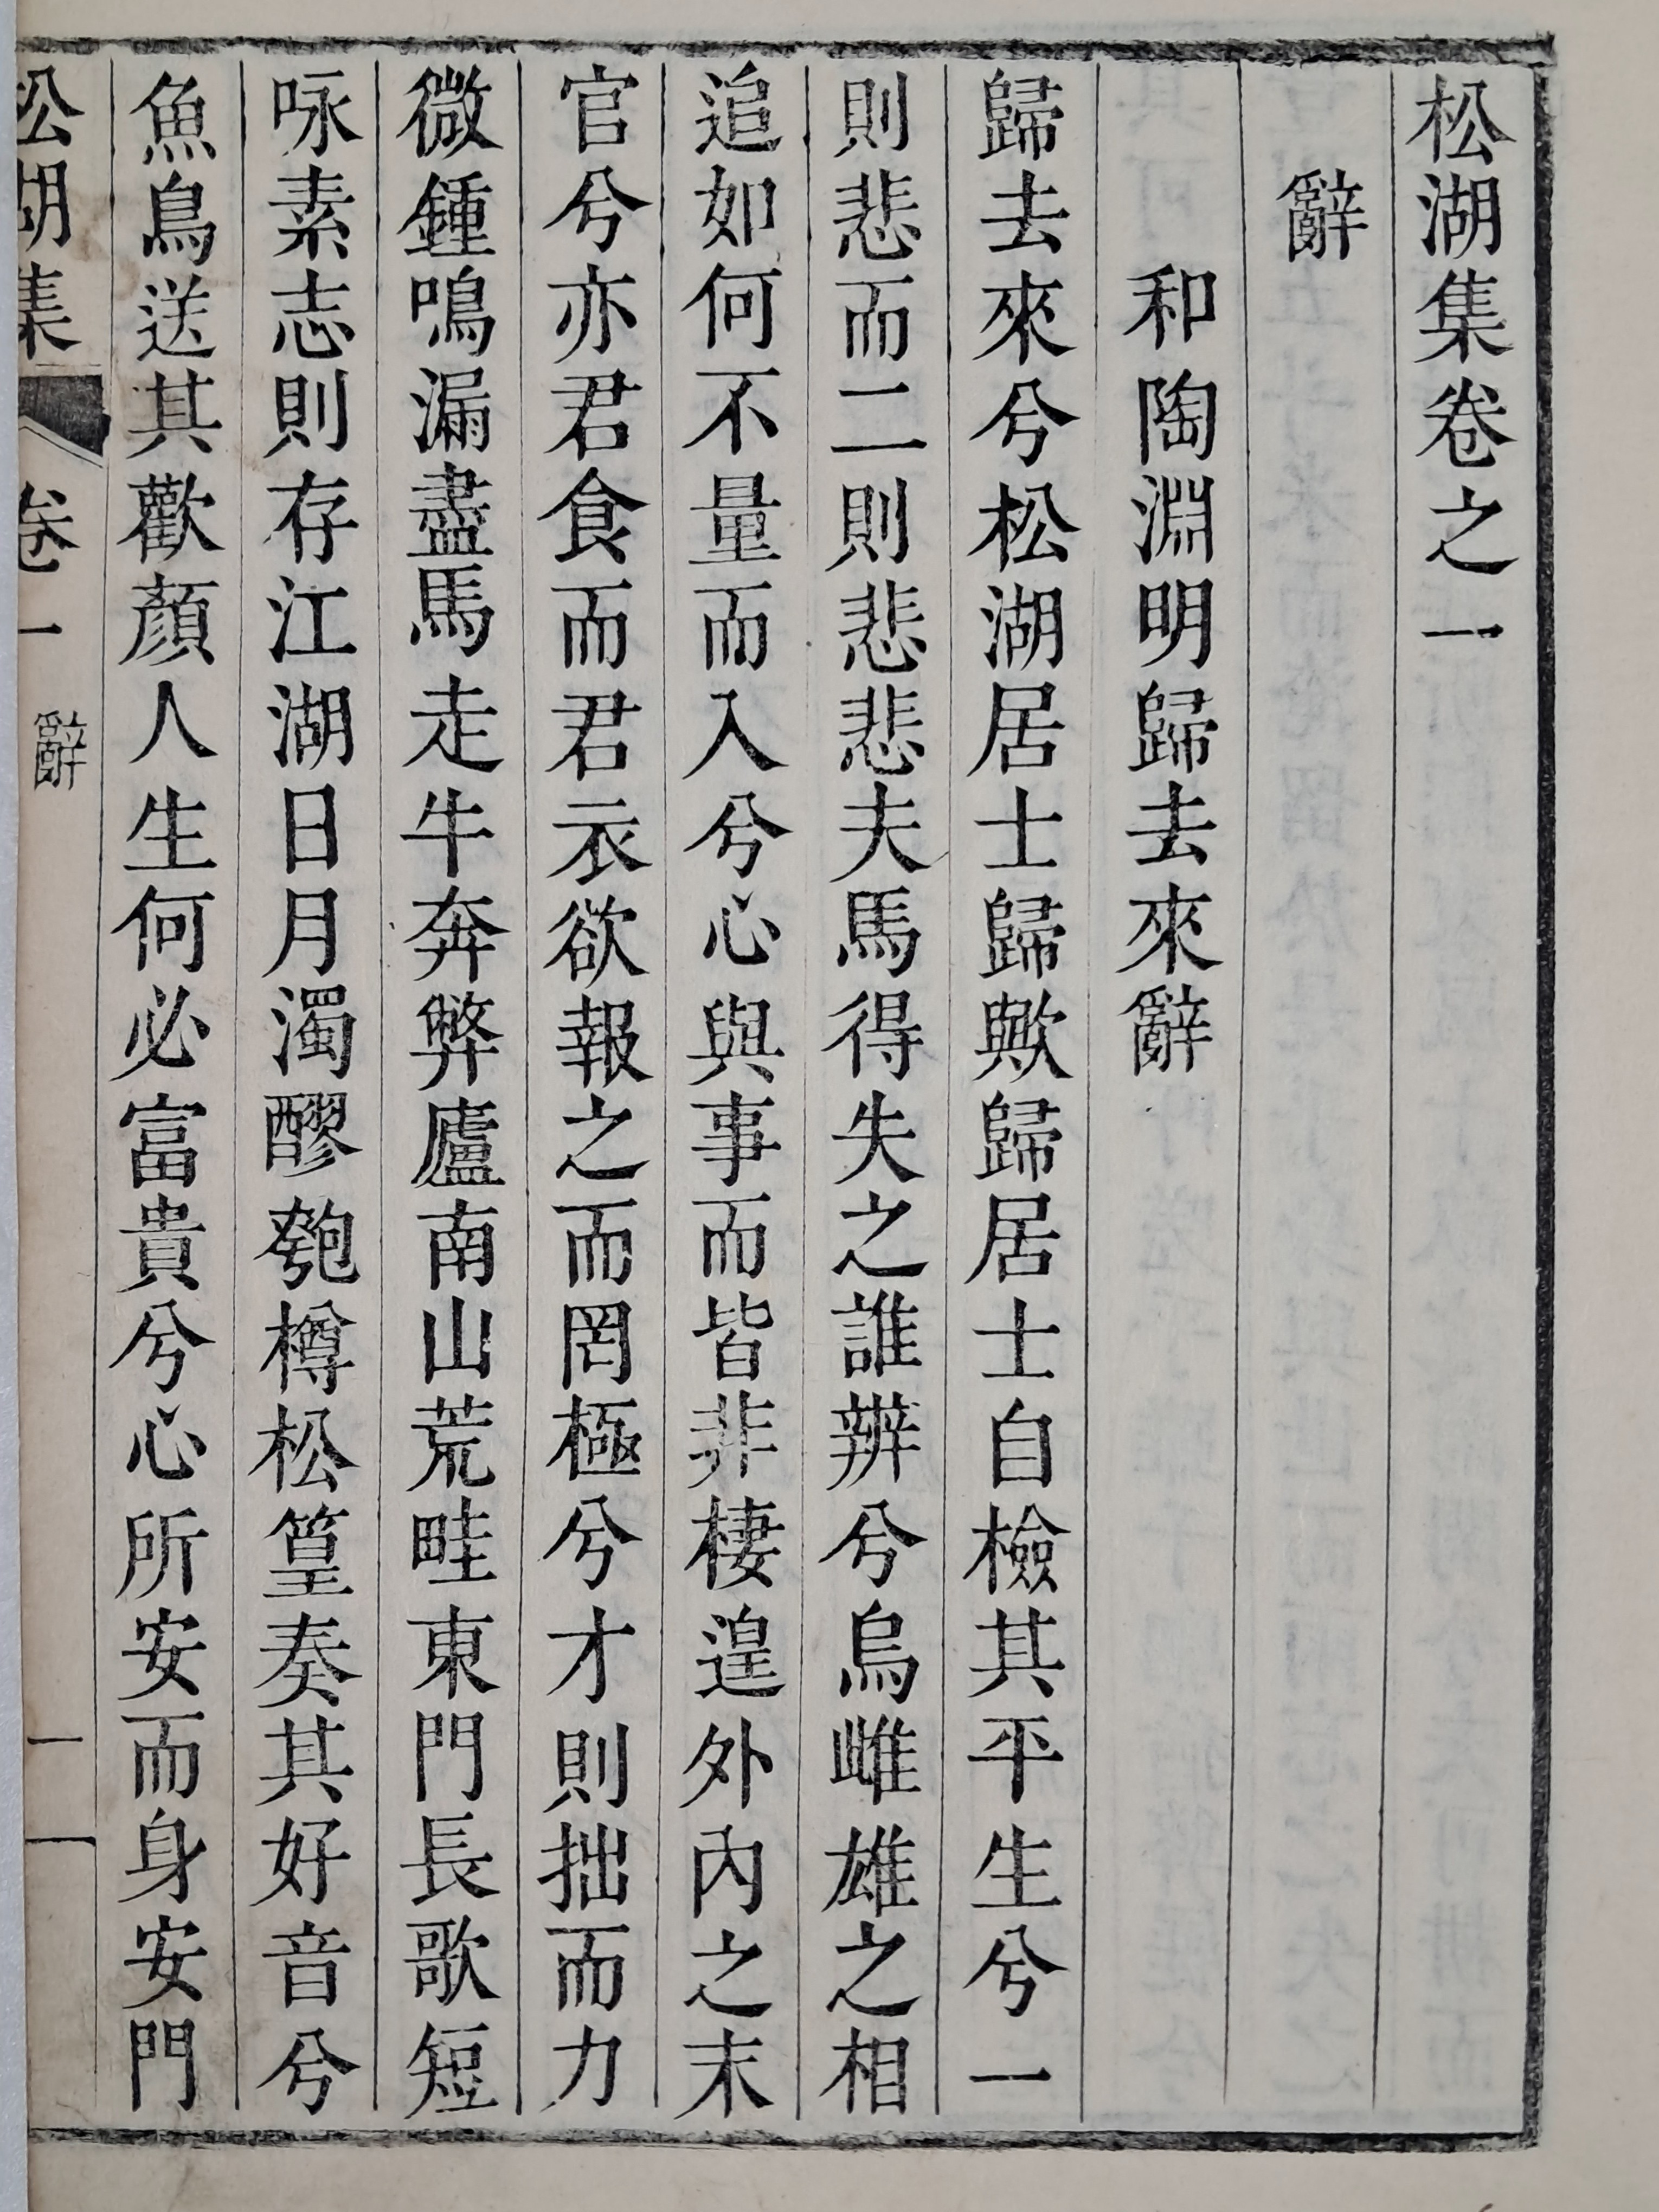 松湖集卷之一
辭
和陶淵明歸去來辭
歸去來兮松湖居士歸歟歸居士自檢其平生兮一
則悲而二則悲悲夫馬得失之誰辨兮烏雌雄之相
追如何不量而入兮心與事而皆非棲遑外內之末
官兮亦君食而君衣欲報之而罔極兮才則拙而力
微鍾鳴漏盡馬走牛奔弊廬南山荒畦東門長歌短
咏素志則存江湖日月濁醪匏樽松篁奏其好音兮
魚鳥送其歡顏人生何必富貴兮心所安而身安門
松湖集 卷一 辭 一